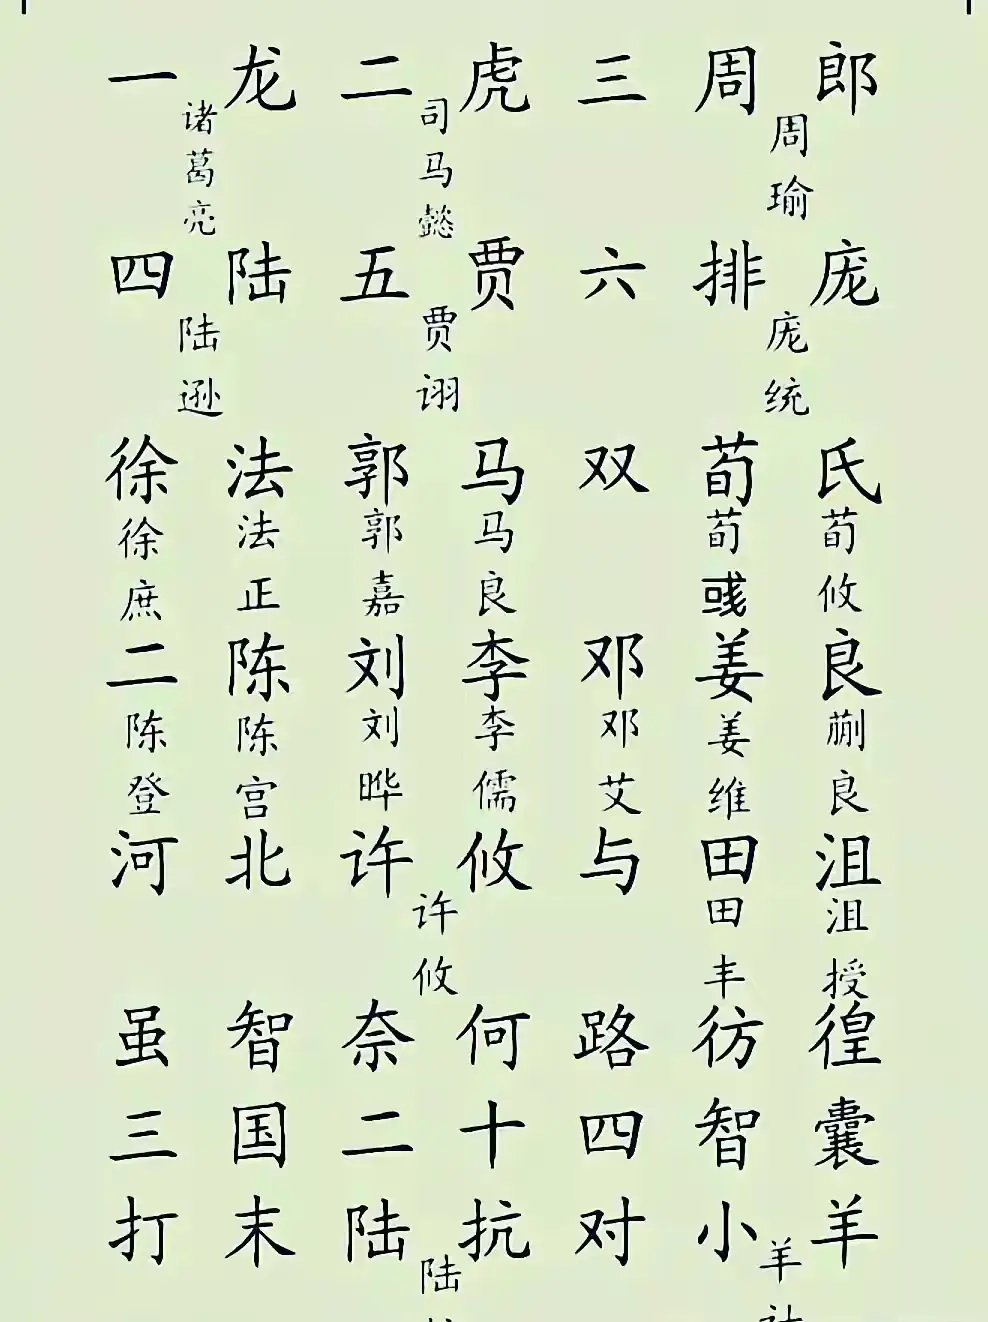 一龙二虎三周郎
诸葛亮 司马懿 周瑜
四陆五贾六排庞
陆逊 贾诩 庞统
徐法郭马双荀氏
徐庶 法正 郭嘉 马良 荀彧 荀攸
二陈刘李邓姜良
陈登 陈宫 刘晔 李儒 邓艾 姜维 蒯良
河北许攸与田沮
许攸 田丰 沮授
虽智奈何路彷徨
三国二十四智囊
打末陆抗对小羊
陆 羊